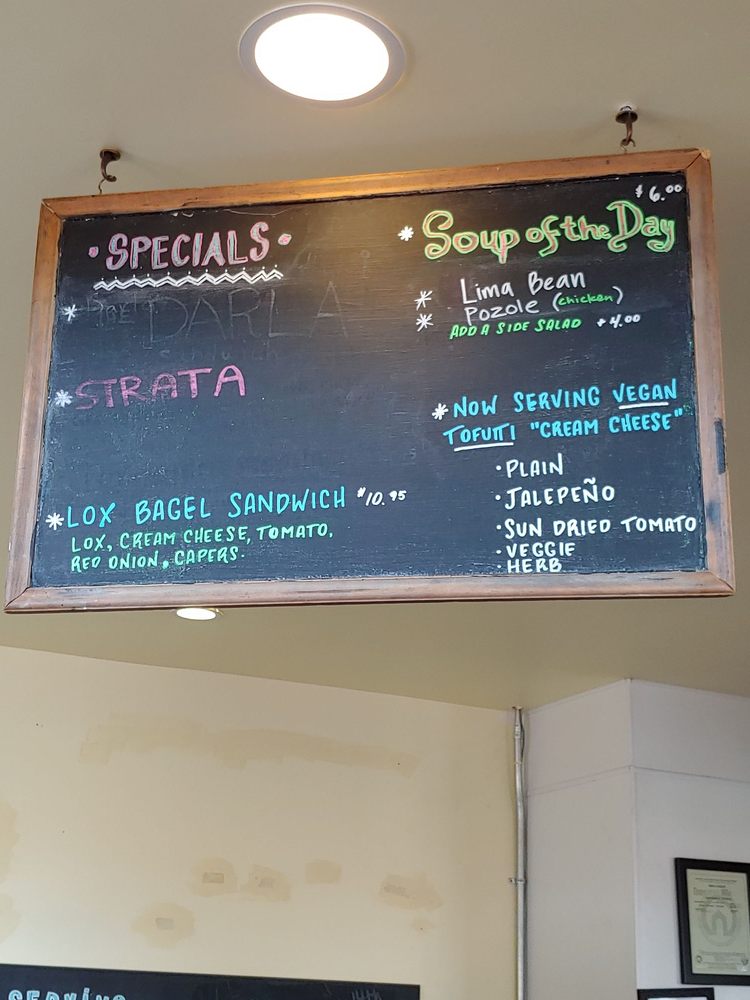 • SPECIALS •
* THE DARLA
* STRATA
* LOX BAGEL SANDWICH $10.95
LOX, CREAM CHEESE, TOMATO,
RED ONION, CAPERS.
$6.00
* Soup of the Day
* Lima Bean
* Pozole (chicken)
ADD A SIDE SALAD +4.00
* NOW SERVING VEGAN
TOFUTTI "CREAM CHEESE"
• PLAIN
• JALEPEÑO
• SUN DRIED TOMATO
• VEGGIE
• HERB
SERVING